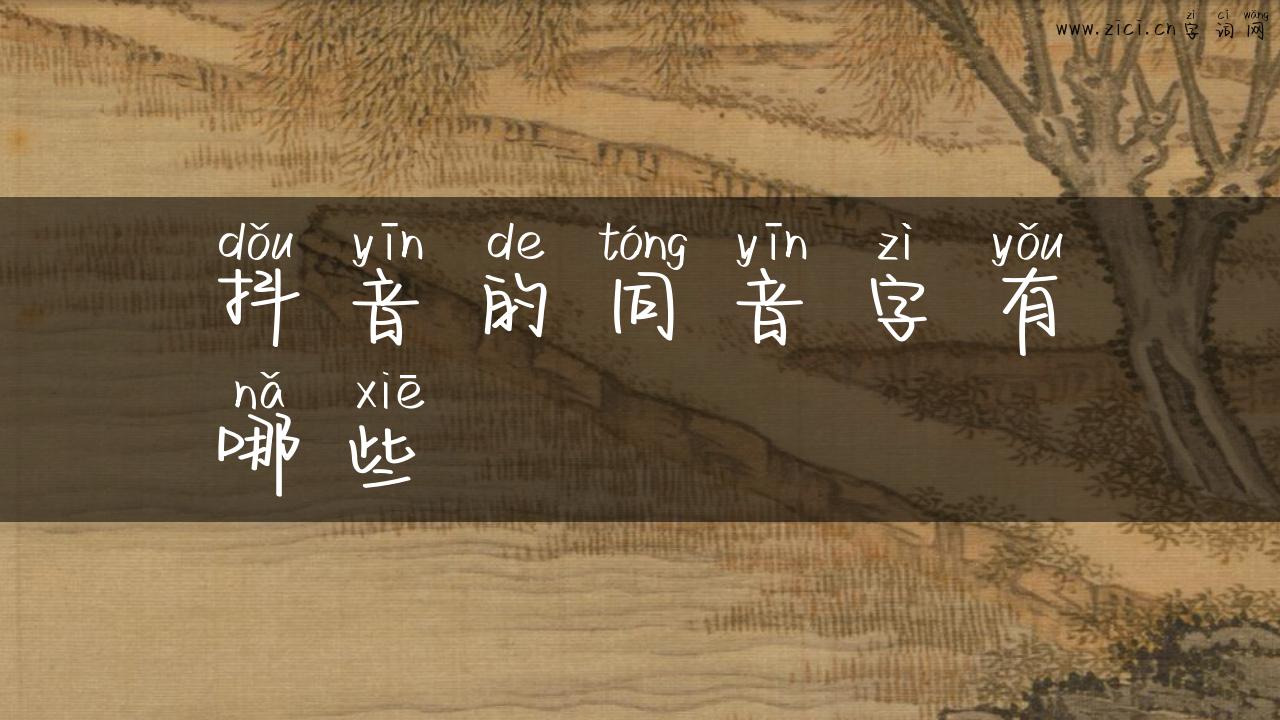 zì cí wǎng
www.zici.cn字词网
dǒu yīn de tóng yīn zì yǒu
抖音的同音字有
nǎ xiē
哪些